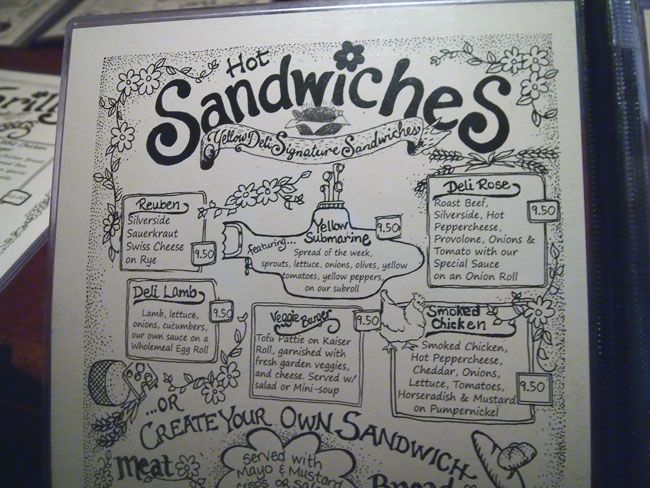 Hot
Sandwiches
Yellow Deli Signature Sandwiches
Reuben
Silverside
Sauerkraut
Swiss Cheese
on Rye
9.50
Yellow
Submarine
9.50
featuring...
Spread of the week,
sprouts, lettuce, onions, olives, yellow
tomatoes, yellow peppers,
on our subroll
Deli Rose
Roast Beef,
Silverside, Hot
Peppercheese,
Provolone, Onions &
Tomato with our
Special Sauce
on an Onion Roll
9.50
Deli Lamb
Lamb, lettuce,
onions, cucumbers,
our own sauce on a
Wholemeal Egg Roll
9.50
Veggie Burger
9.50
Tofu Pattie on Kaiser
Roll, garnished with
fresh garden veggies,
and cheese. Served w/
salad or Mini-soup
Smoked
Chicken
Smoked Chicken,
Hot Peppercheese,
Cheddar, Onions,
Lettuce, Tomatoes,
Horseradish & Mustard
on Pumpernickel
9.50
...OR
CREATE YOUR OWN SANDWICH
meat
Served with
Mayo & Mustard
Bread